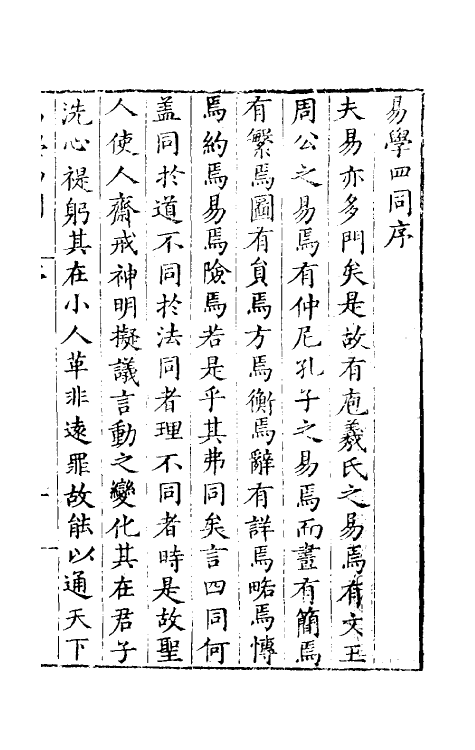 易學四同序
夫易亦多門矣是故有庖羲氏之易焉有文王
周公之易焉有仲尼孔子之易焉而畫有簡焉
有繁焉圖有負焉方焉衡焉辭有詳焉略焉慱
焉約焉易焉險焉若是乎其弗同矣言四同何
盖同於道不同於法同者理不同者時是故聖
人使人齋戒神明擬議言動之變化其在君子
洗心禔躬其在小人革非遠罪故能以通天下